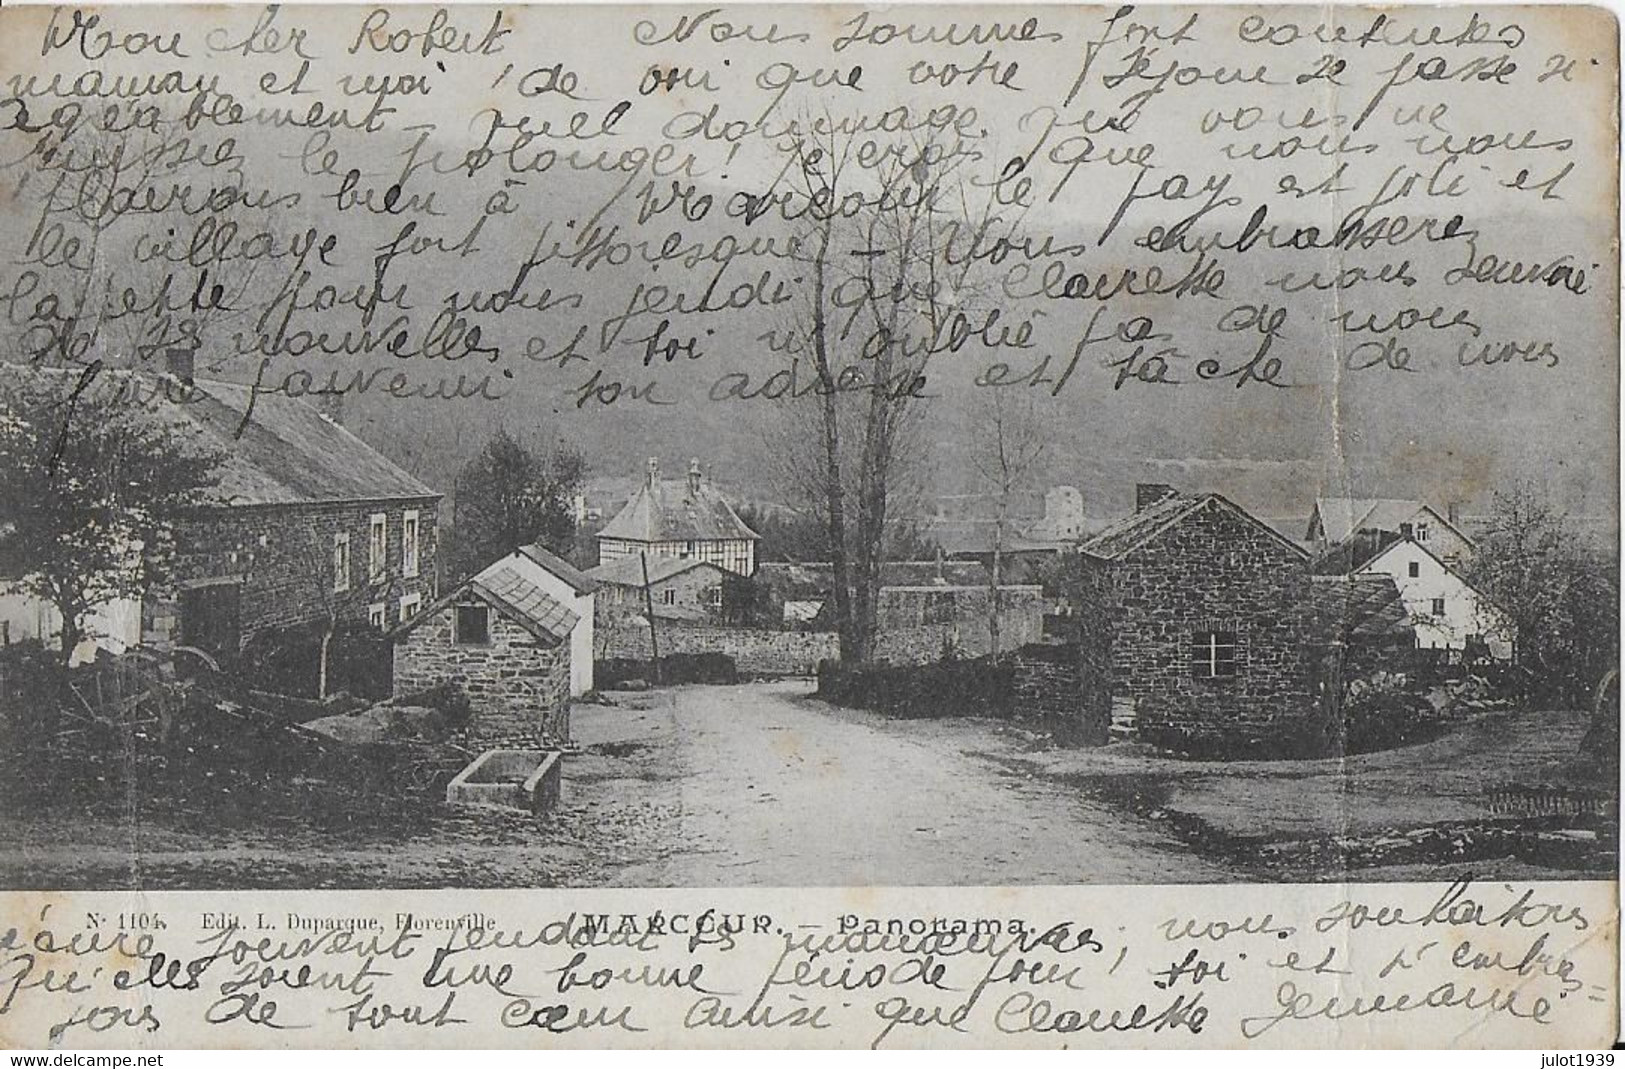 Mon cher Robert Nous sommes fort contentes
maman et moi de voir que votre séjour se passe si
agéablement – quel dommage que vous ne
puissiez le prolonger! je crois que nous nous
plairons bien à Marcour le pay est joli et
le village fort pittoresque – Vous embrasserez
la petite pour nous jeudi que Clairette nous
de ses nouvelles et toi n'oublie pas de nous
faire parvenir son adresse et tâche de nous
N° 1104. Edit. L. Duparque, Florenville MARCOUR. – Panorama.
écrire souvent pendant les manœuvres, nous souhaitons
qu'elles soient une bonne période pour toi et t'embras=
sons de tout cœur ainsi que Clairette Germaine
delcampe.net
julot1939